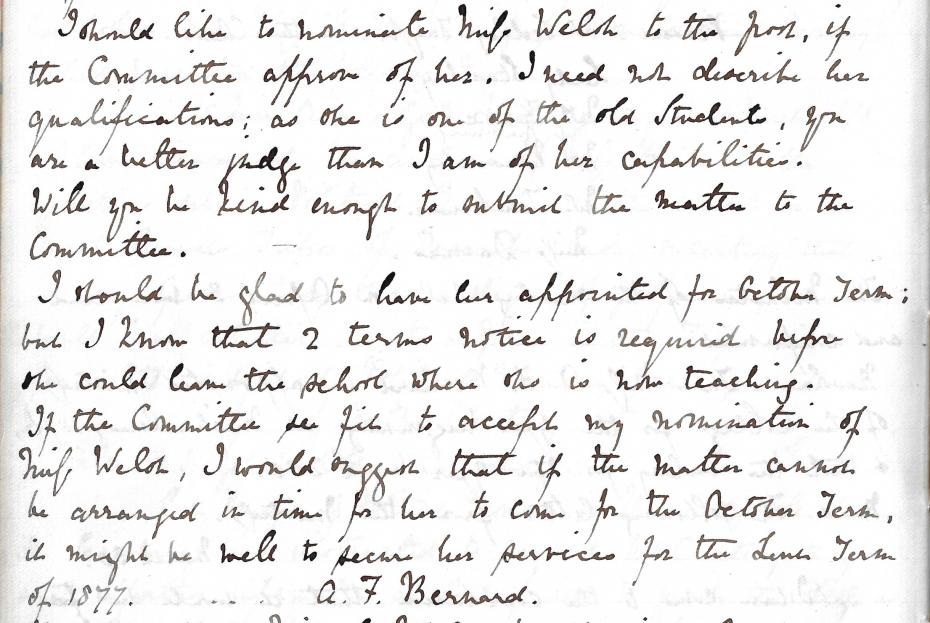 I should like to nominate Miss Welsh to the post, if
the Committee approve of her. I need not describe her
qualifications; as she is one of the old Students, you
are a better judge than I am of her capabilities.
Will you be kind enough to submit the matter to the
Committee.
I should be glad to have her appointed for October Term;
but I know that 2 terms notice is required before
she could leave the school where she is now teaching.
If the Committee see fit to accept my nomination of
Miss Welsh, I would suggest that if the matter cannot
be arranged in time for her to come for the October Term,
it might be well to secure her services for the Lent Term
of 1877. A. F. Bernard.